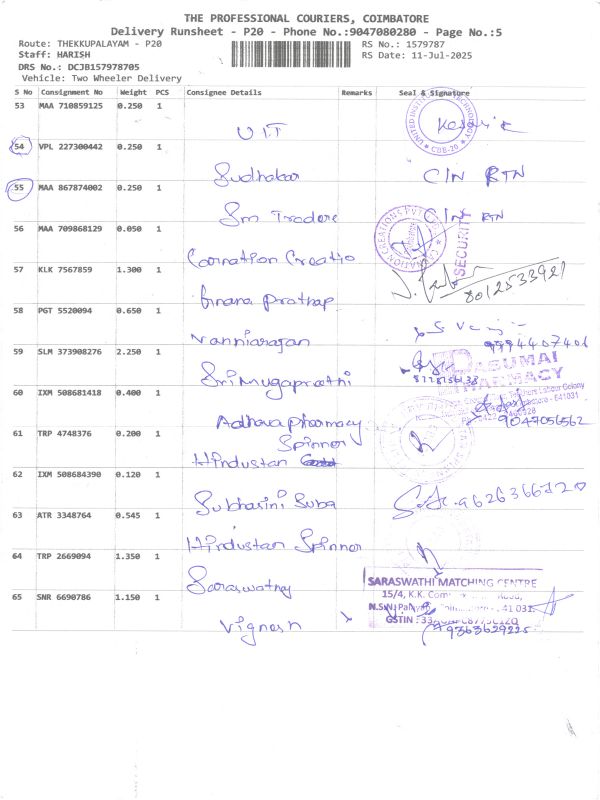 THE PROFESSIONAL COURIERS, COIMBATORE
Delivery Runsheet - P20 - Phone No.:9047080280 - Page No.:5
Route: THEKKUPALAYAM - P20 RS No.: 1579787
Staff: HARISH RS Date: 11-Jul-2025
DRS No.: DCJB157978705
Vehicle: Two Wheeler Delivery
S No Consignment No Weight PCS Consignee Details Remarks Seal & Signature
53 MAA 710859125 0.250 1
UIT
54 VPL 227300442 0.250 1
Sudhakar C/N RTN
55 MAA 867874002 0.250 1
Sm Tradere C/N RTN
56 MAA 709868129 0.050 1
SECURITY
Carnation Creatio
57 KLK 7567859 1.300 1
8012533921
Gnana Prathap
58 PGT 5520094 0.650 1
Nanniarajan 9994407401
59 SLM 373908276 2.250 1
VASUMAI
PHARMACY
Sri Mugaprathi
60 IXM 508681418 0.400 1
Adhavapharmacy 9047056562
61 TRP 4748376 0.200 1
Spinner
Hindustan
62 IXM 508684390 0.120 1
Subharini Suba 9626366720
63 ATR 3348764 0.545 1
Hindustan Spinner
64 TRP 2669094 1.350 1
Saraswathy
SARASWATHI MATCHING CENTRE
65 SNR 6690786 1.150 1
Vignesh 9363629225